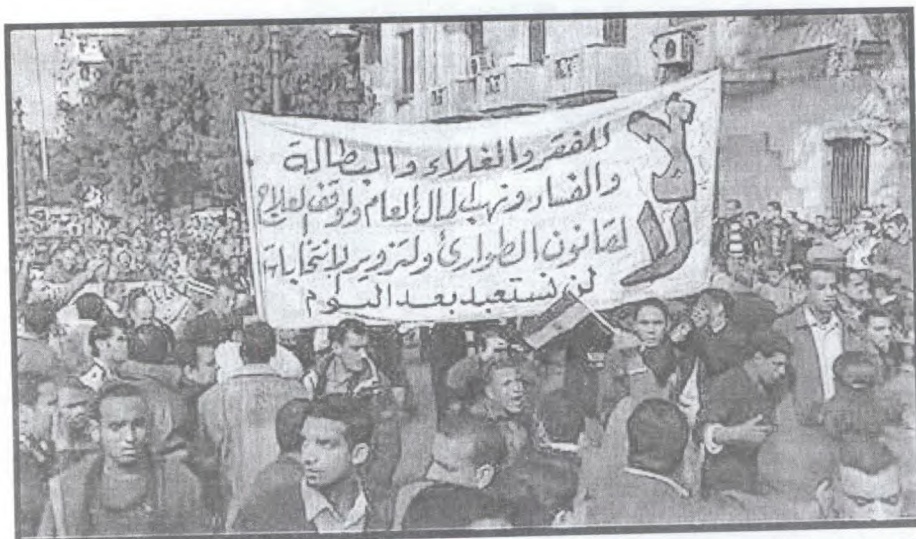 لا للفقر والغلاء والبطالة
والفساد ونهب المال العام ولوقف العلاج
لا لقانون الطوارئ ولتزوير الانتخابات
لن نستعبد بعد اليوم